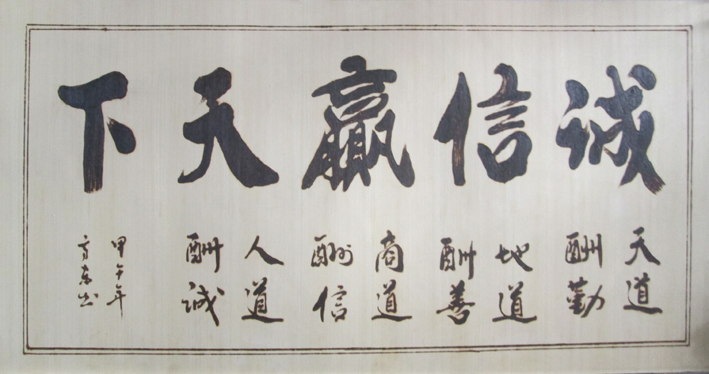 诚信赢天下
天道
酬勤
地道
酬善
商道
酬信
人道
酬诚
甲午年